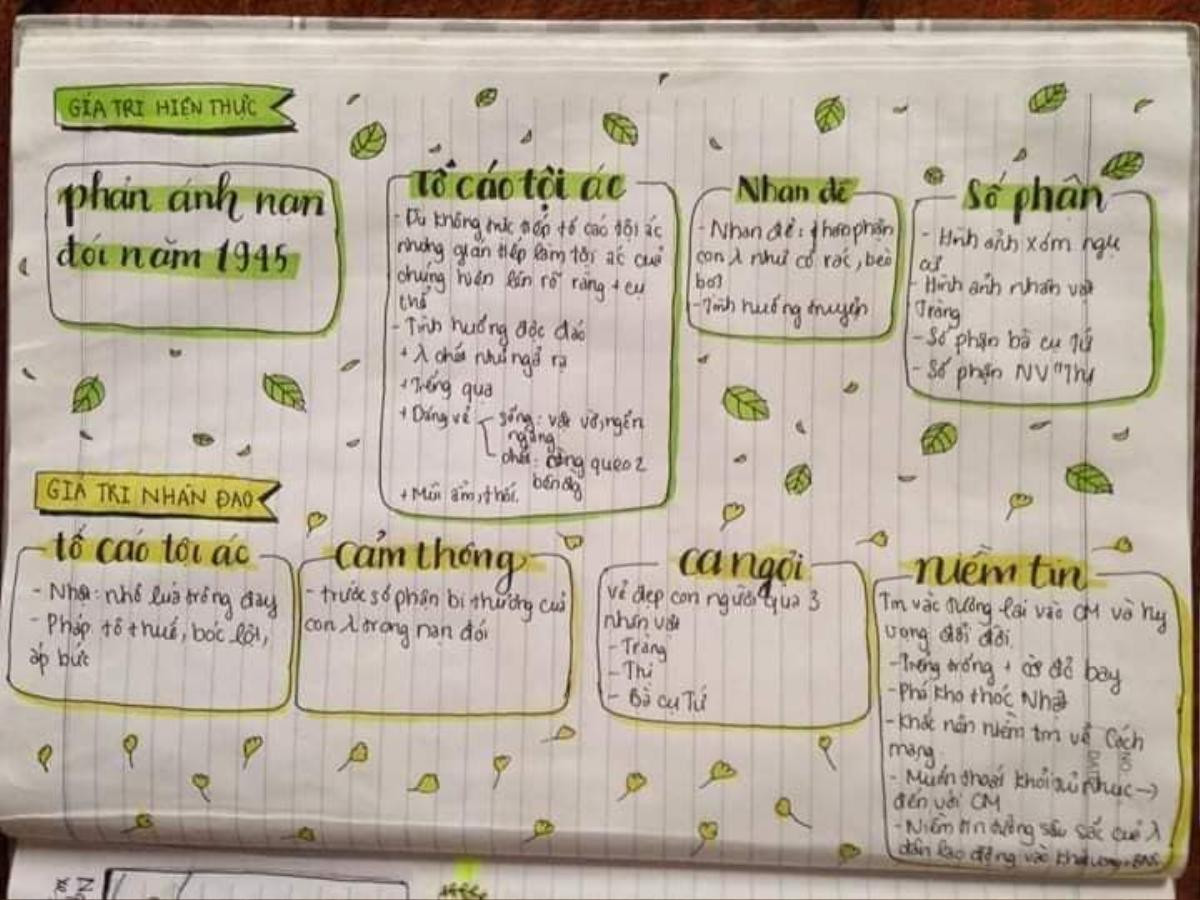 GIÁ TRỊ HIỆN THỰC
phản ánh nạn
đói năm 1945
Tố cáo tội ác
- Dù không trực tiếp tố cáo tội ác
nhưng gián tiếp làm tội ác của
chúng hiện lên rõ ràng + cụ
thể
- Tình huống độc đáo
+ λ chết như ngả rạ
+ Tiếng quạ
+ Dáng vẻ
sống: vật vờ, ngổn
ngang
chết: còng queo 2
bên đg
+ Mùi ẩm, thối.
Nhan đề
- Nhan đề: thân phận
con λ như cỏ rác, bèo
bọt
- Tình huống truyện
Số phận
- Hình ảnh xóm ngụ
cư
- Hình ảnh nhân vật
Tràng
- Số phận bà cụ Tứ
- Số phận NV "Thị
GIÁ TRỊ NHÂN ĐẠO
tố cáo tội ác
- Nhật: nhổ lúa trồng đay
- Pháp tô thuế, bóc lột,
áp bức
Cảm thông
- trước số phận bi thương của
con λ trong nạn đói
ca ngợi
Vẻ đẹp con người qua 3
nhân vật
- Tràng
- Thị
- Bà cụ Tứ
niềm tin
Tin vào tương lai vào CM và hy
vọng đổi đời.
- Tiếng trống + cờ đỏ bay
- Phá kho thóc Nhật
- Khắc hằn niềm tin về Cách
mạng
- Muốn thoát khỏi tủi nhục →
đến với CM
- Niềm tin tưởng sâu sắc của λ
dân lao động vào
NO.
DATE